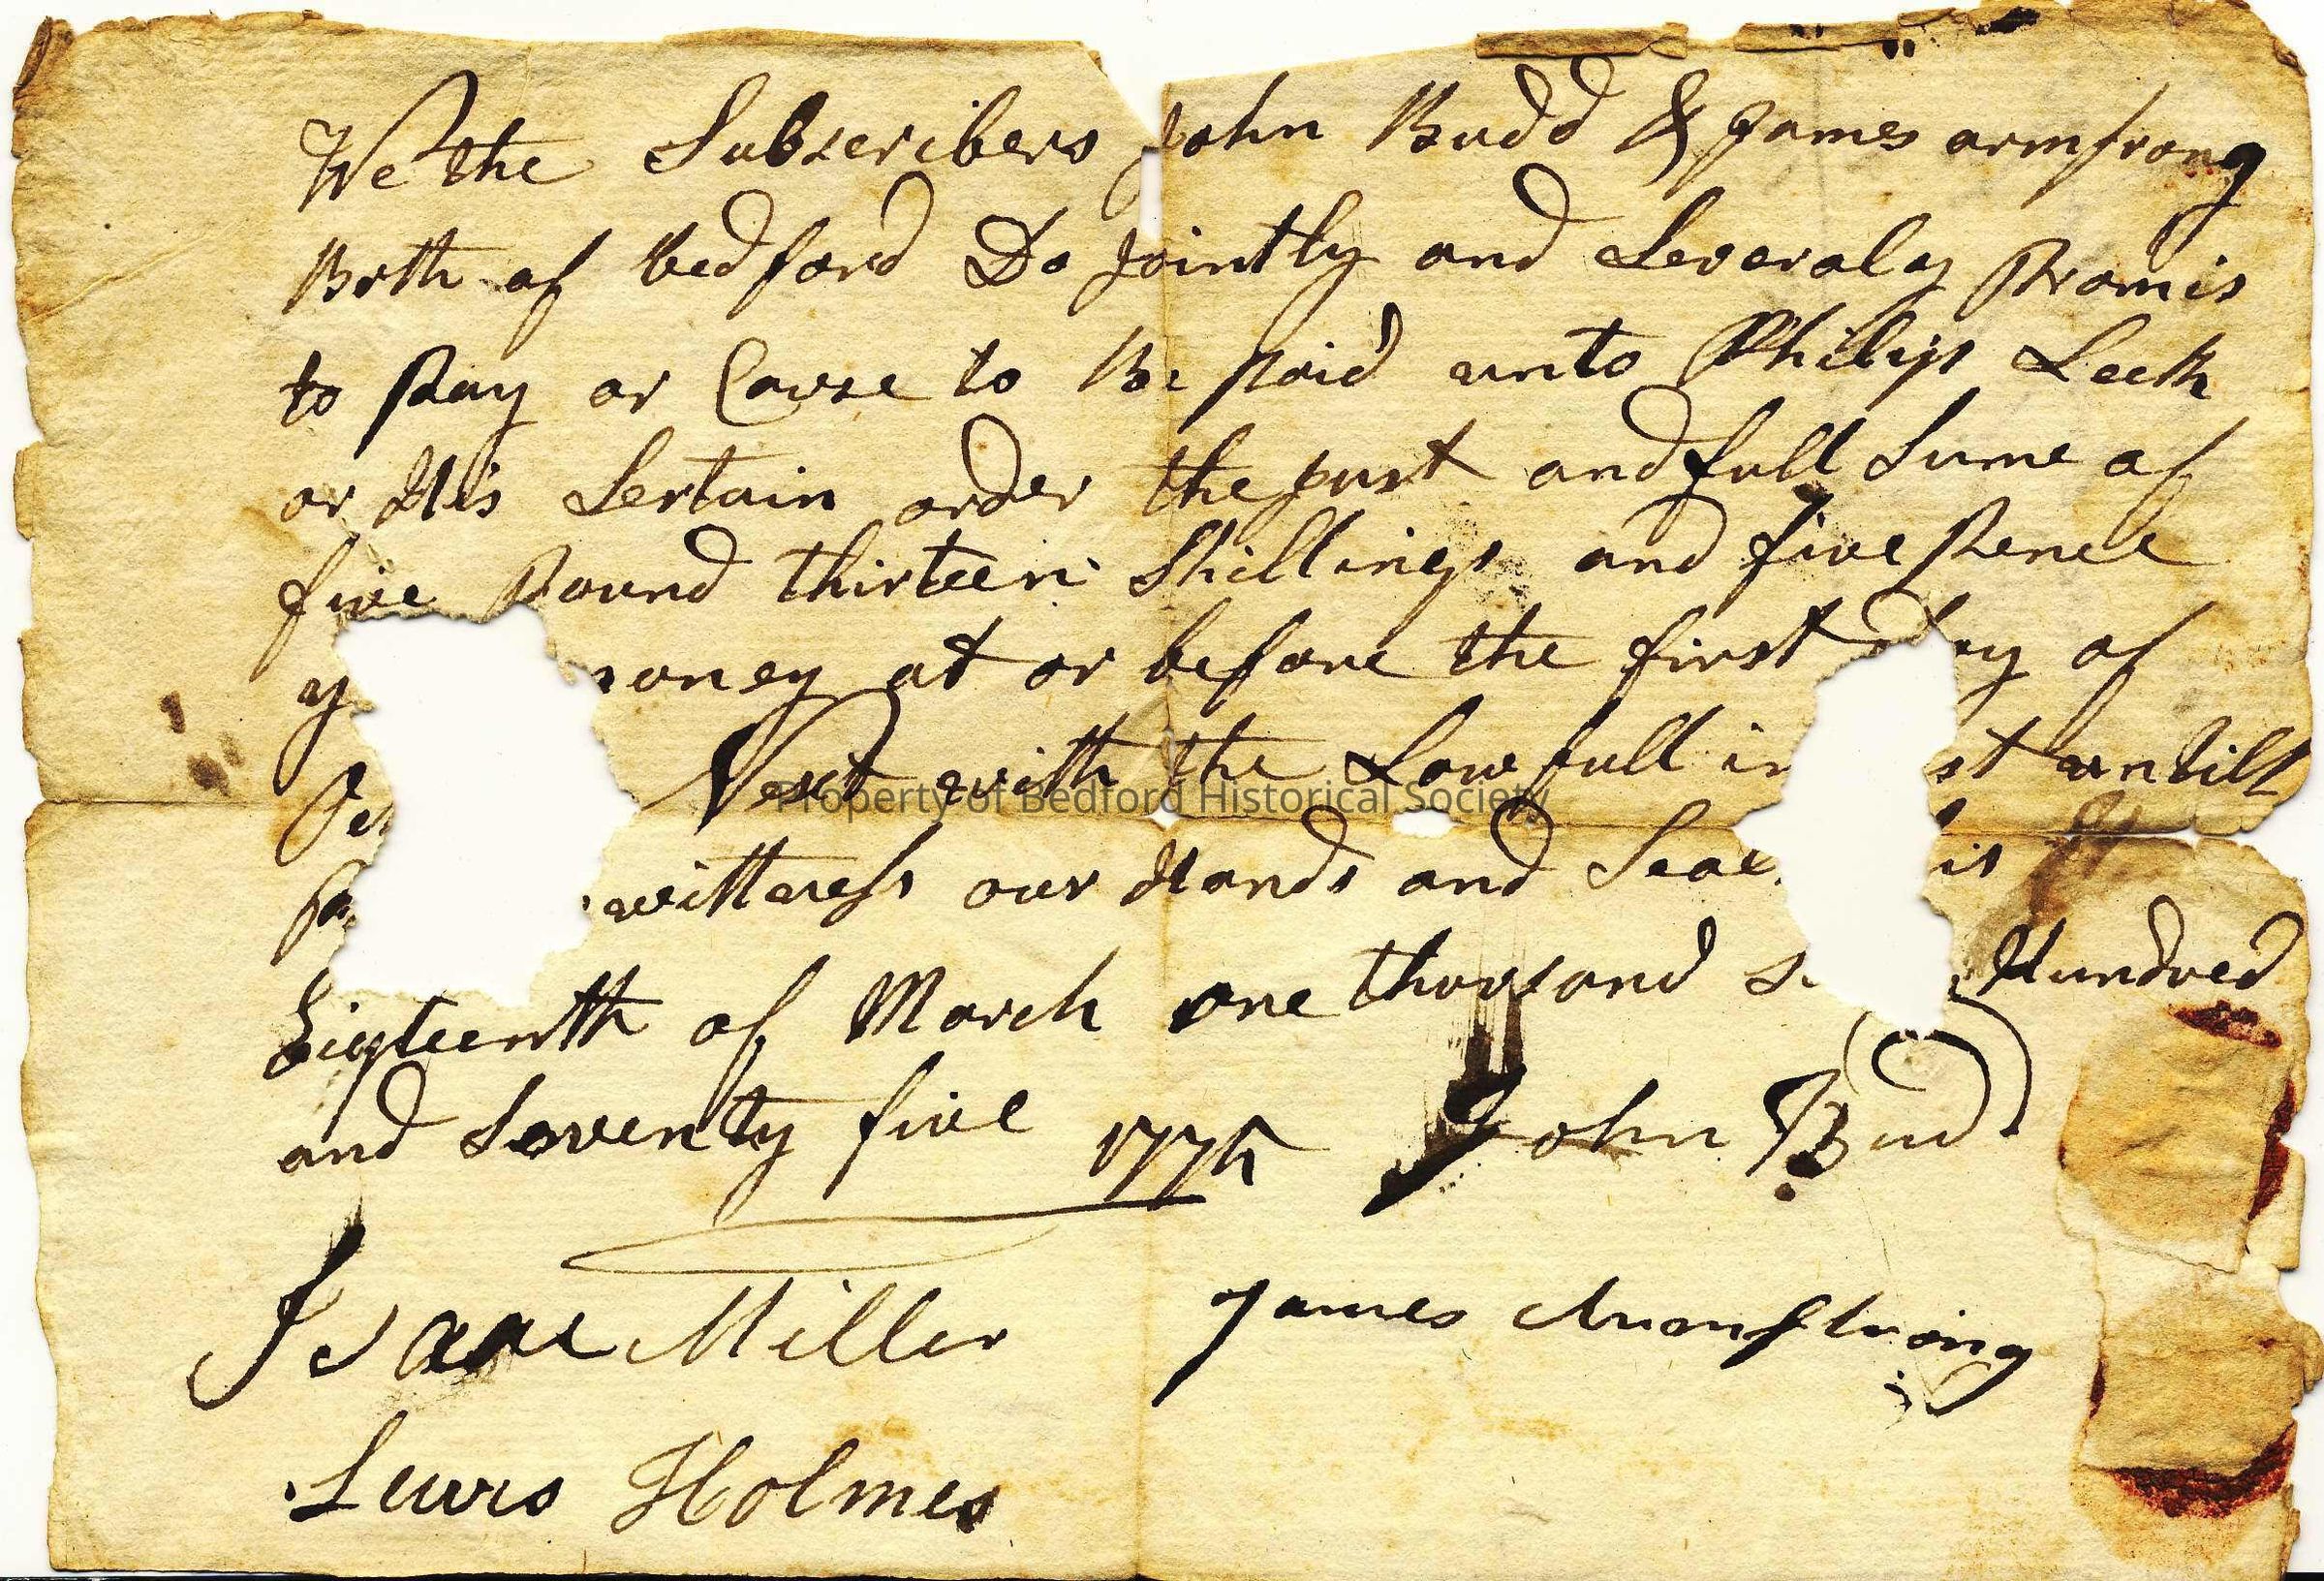 We the Subscribers John Budd & James armstrong
Both of Bedford Do Jointly and Severaly Promis
to Pay or Cause to Be Paid unto Philip Leek
or His Sertain order the just and full Sume of
five Pound thirteen Shillings and five Pence
money at or before the first day of
Next with the Lawfull in st untill
wittness our Hands and Seal is
Sixteenth of March one thousand Hundred
and Seventy five 1775 John Budd
Isaac Miller James Armstrong
Lewis Holmes
Property of Bedford Historical Society